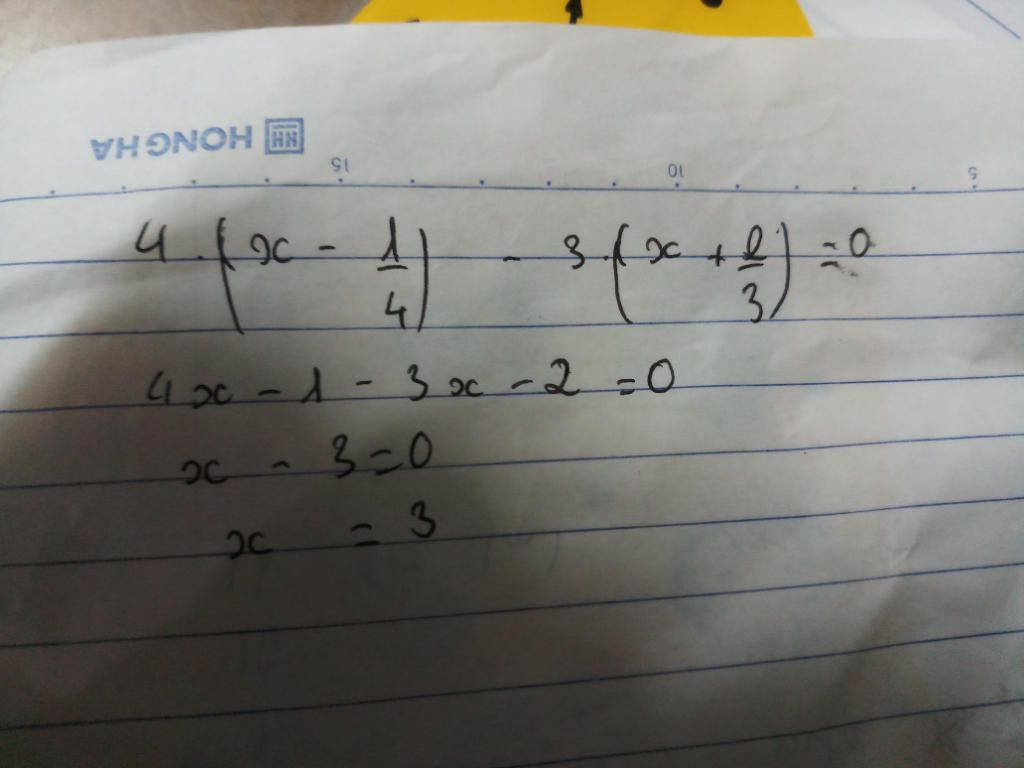 HONG HA
15 10 5
4 . (x - 1/4) - 3 . (x + 2/3) = 0
4x - 1 - 3x - 2 = 0
x - 3 = 0
x = 3